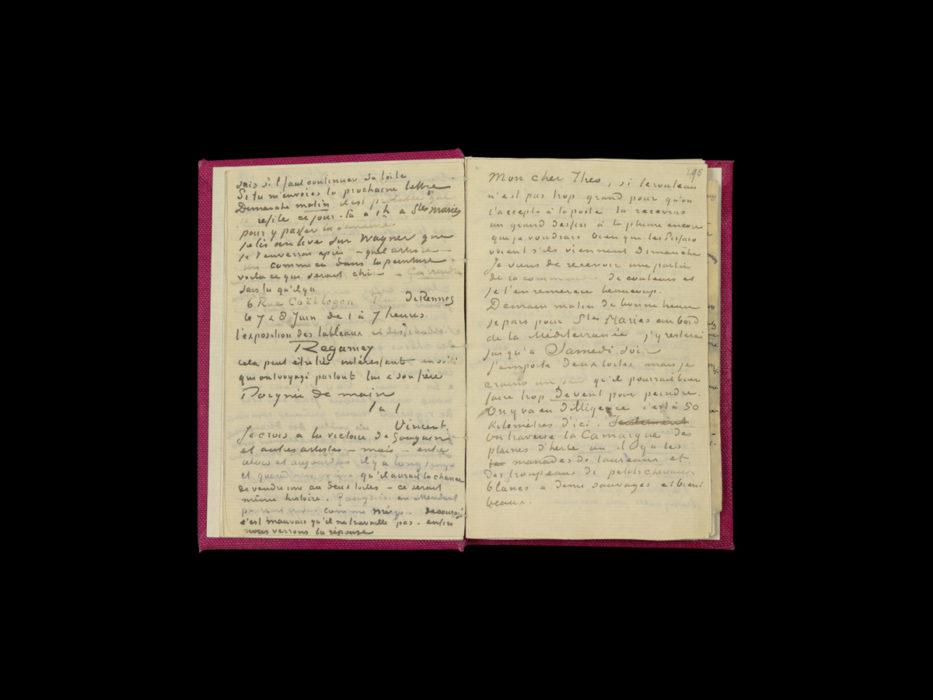 sais s'il faut continuer la toile
Si tu m'envoies la prochaine lettre
Dimanche matin il est probable que
je file ce jour-là à 1 h à Stes Maries
pour y passer la semaine.
Je lis un livre sur Wagner que
je t'enverrai après – quel artiste –
un comme ça dans la peinture
voilà ce qui serait chic –
Sais tu qu'il y a
6 Rue Coëtlogon Rue de Rennes
le 7 & 8 Juin de 1 à 7 heures
l'exposition des tableaux et des
Regamey
cela peut être très intéressant
qui ont voyagé partout lui & son frère
Poignée de main
t à t
Vincent
Je crois à la victoire de Gauguin
et autres artistes – mais – entre
alors et aujourd'hui il y a longtemps
et quand même qu'il aurait la chance
de vendre une ou deux toiles – ce serait
même histoire. Gauguin en attendant
pourrait comme Méryon découragé
c'est mauvais qu'il ne travaille pas – enfin
nous verrons la réponse
195
Mon cher Theo, si le rouleau
n'est pas trop grand pour qu'on
l'accepte à la poste tu recevras
un grand dessin à la plume encore
que je voudrais bien que les Pissaro
voient s'ils viennent Dimanche
Je viens de recevoir une partie
de la commande de couleurs et
je t'en remercie beaucoup.
Demain matin de bonne heure
je pars pour Stes Maries au bord
de la Méditerranée j'y resterai
jusqu'à Samedi soir
J'emporte deux toiles mais je
crains un peu qu'il pourrait bien
faire trop de vent pour peindre.
On y va en diligence c'est à 50
kilomètres d'ici.
On traverse la Camargue des
plaines d'herbe où il y a les
manades de taureaux et
des troupeaux de petits chevaux
blancs à demi sauvages et bien
beaux.